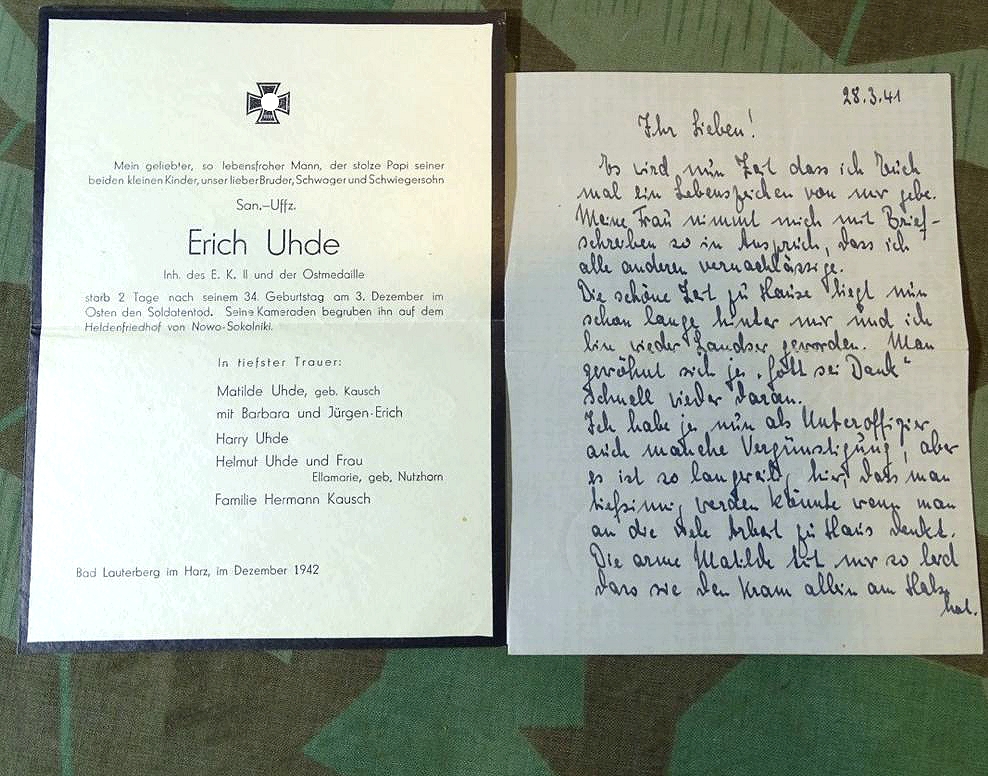 Mein geliebter, so lebensfroher Mann, der stolze Papi seiner
beiden kleinen Kinder, unser lieber Bruder, Schwager und Schwiegersohn
San.-Uffz.
Erich Uhde
Inh. des E. K. II und der Ostmedaille
starb 2 Tage nach seinem 34. Geburtstag am 3. Dezember im
Osten den Soldatentod. Seine Kameraden begruben ihn auf dem
Heldenfriedhof von Nowo-Sokolniki.
In tiefster Trauer:
Matilde Uhde, geb. Kausch
mit Barbara und Jürgen-Erich
Harry Uhde
Helmut Uhde und Frau
Ellamarie, geb. Nutzhorn
Familie Hermann Kausch
Bad Lauterberg im Harz, im Dezember 1942
28.3.41
Ihr Lieben!
Es wird nun Zeit dass ich Euch
mal ein Lebenszeichen von mir gebe.
Meine Frau nimmt mich mit Brief-
schreiben so in Anspruch, dass ich
alle anderen vernachlässige.
Die schöne Zeit zu Hause liegt nun
schon lange hinter mir und ich
bin wieder Landser geworden. Man
gewöhnt sich ja „Gott sei Dank"
schnell wieder daran.
Ich habe ja nun als Unteroffizier
auch manche Vergünstigung, aber
es ist so langweilig hier, dass man
tiefsinnig werden könnte wenn man
an die viele Arbeit zu Haus denkt.
Die arme Matilde tut mir so leid
dass sie den Kram allein am Halse
hat.